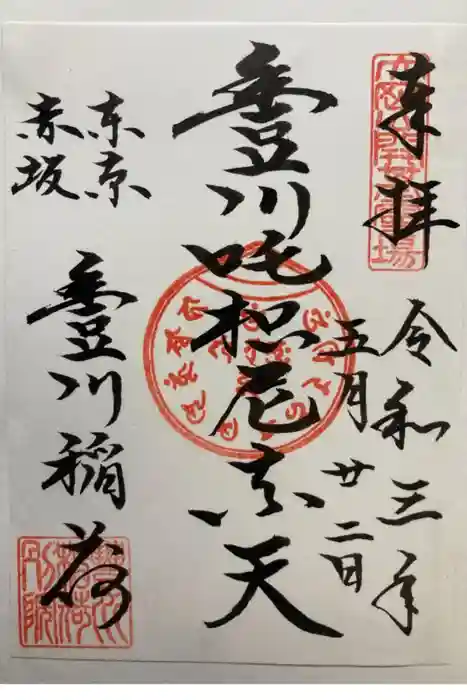 奉拝
令和三年
五月廿二日
豊川吒枳尼真天
東京
赤坂
豊川稲荷
豊川
稲荷
別院